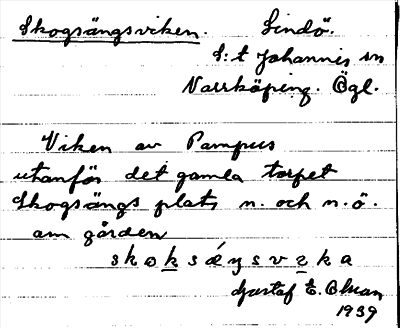 Skogsängsviken. Lindö.
S:t Johannis sn
Norrköping. Ögl.
Viken av Pampus
utanför det gamla torpet
Skogsängs plats n. och n.ö.
om gården
Gustaf E. Ohman
1939